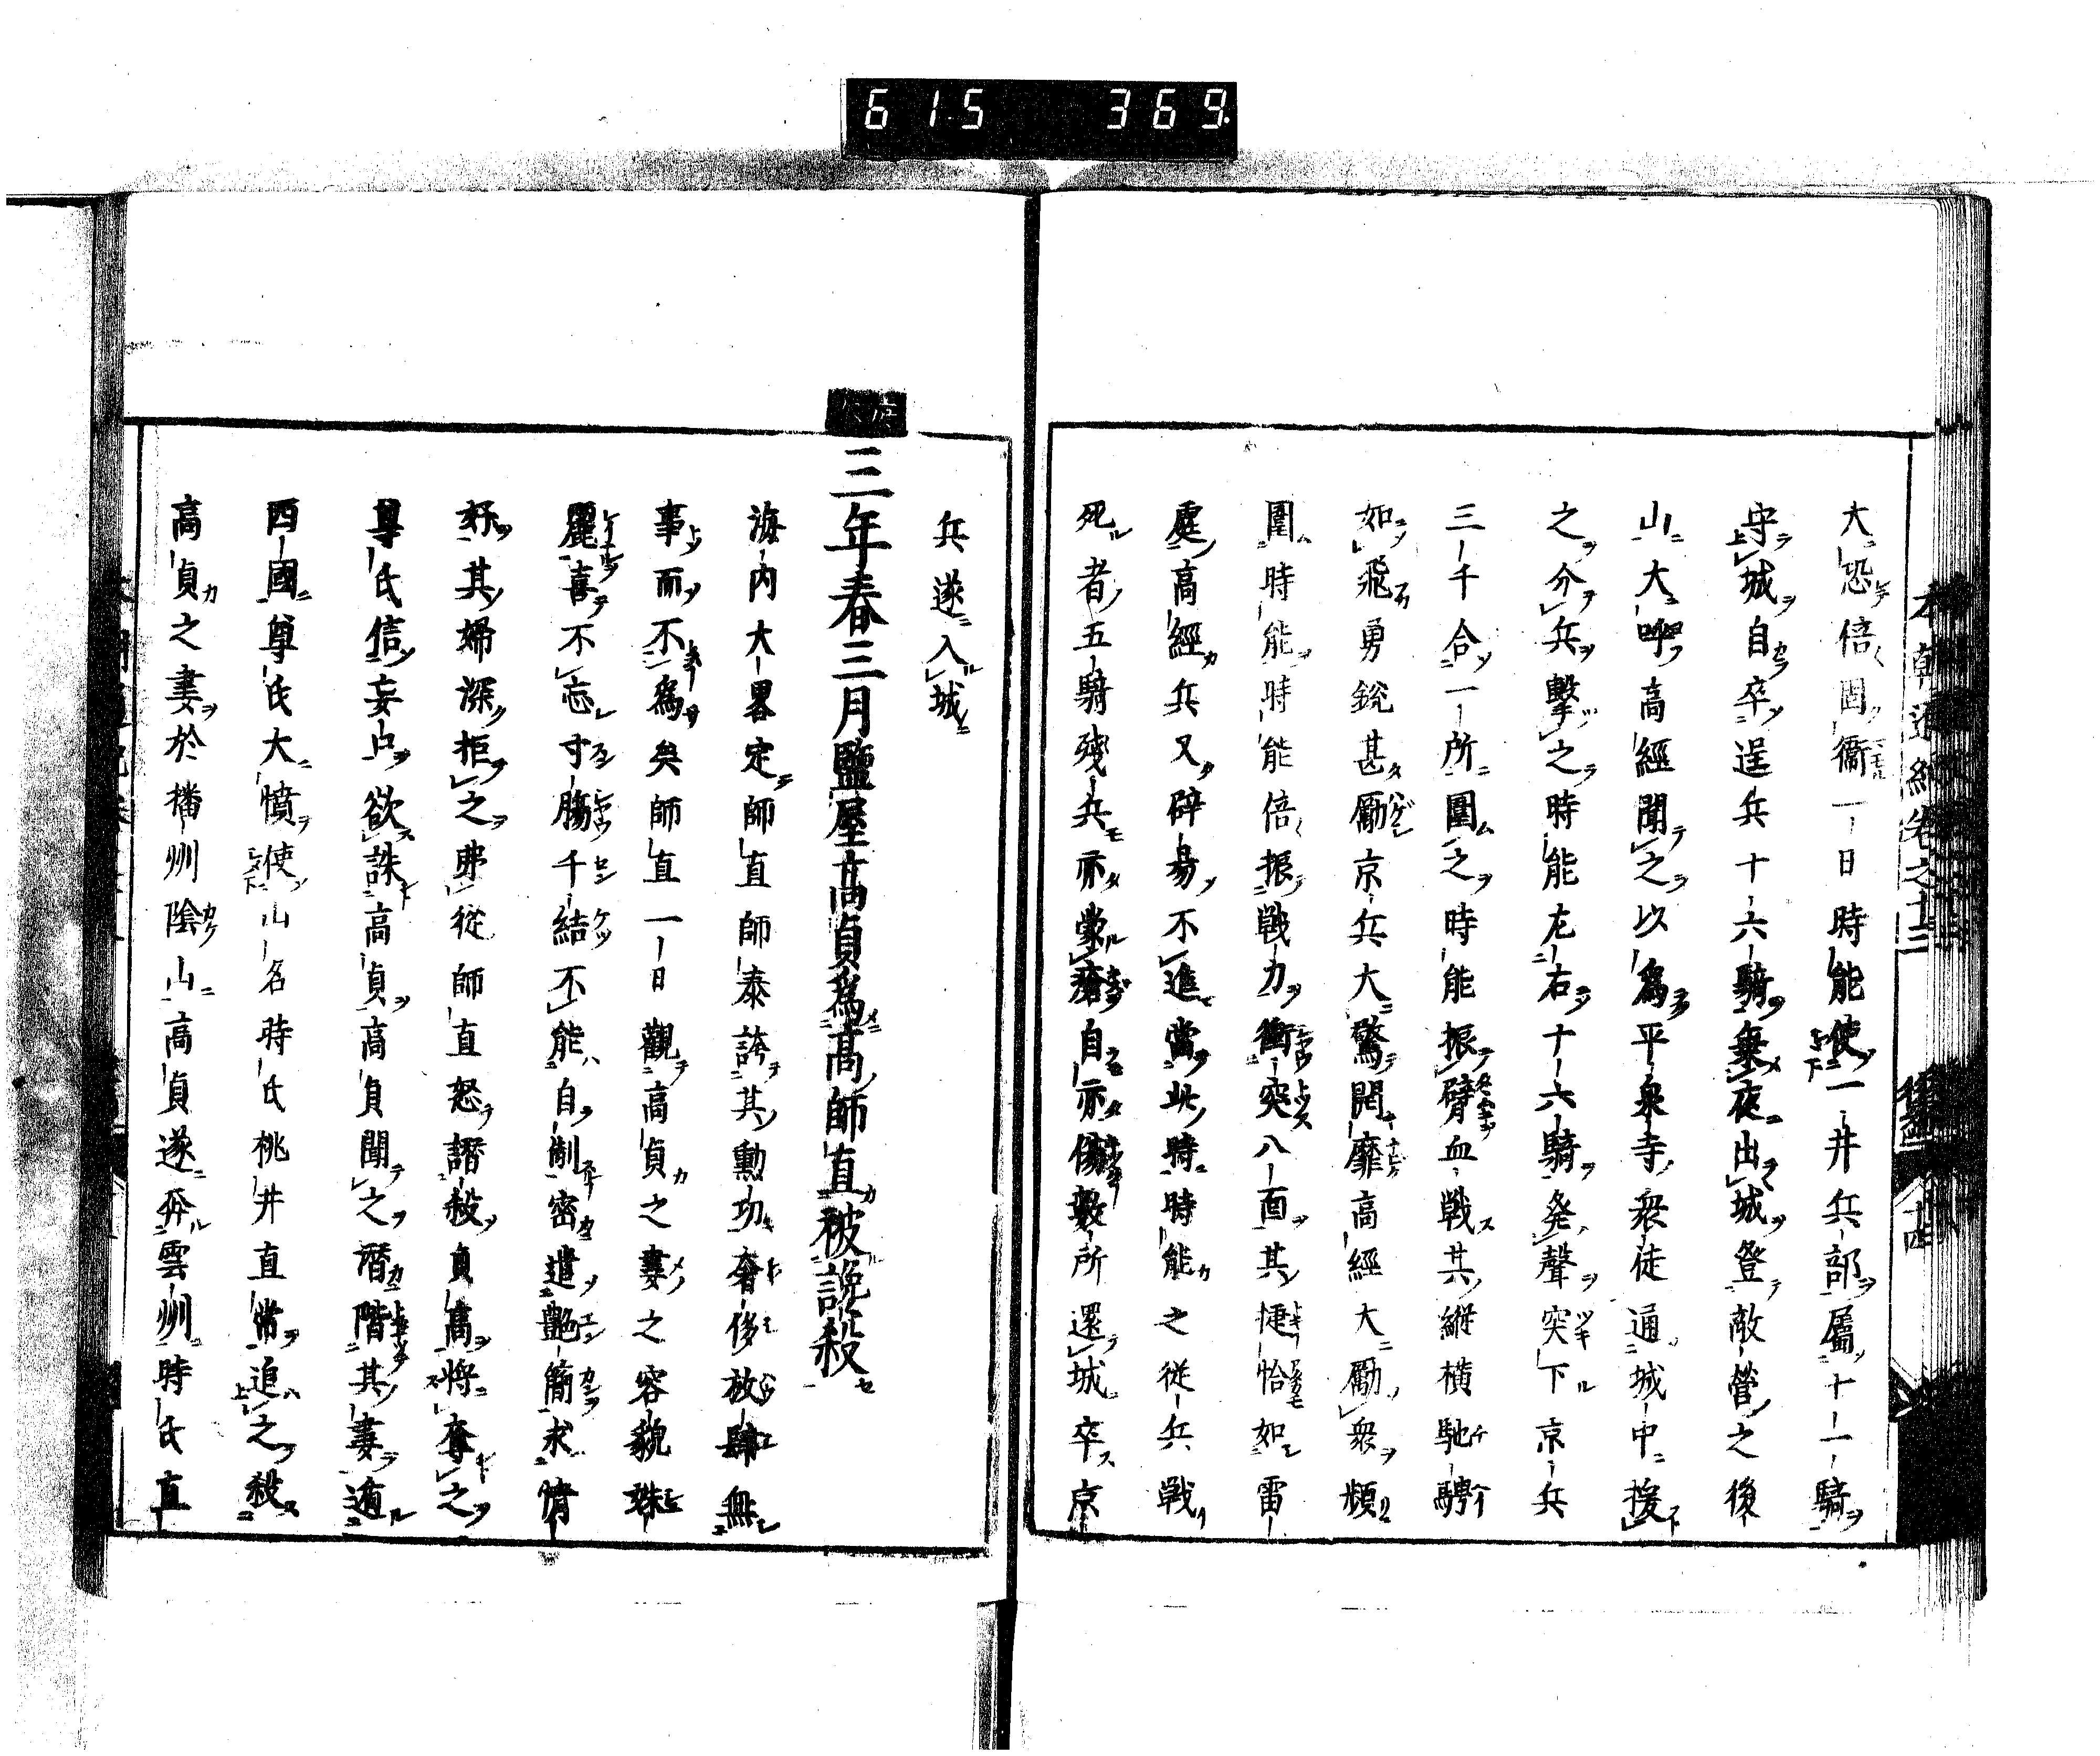 615 369
大恐倍固衞一日時能使一井兵部屬十一騎
守城自卒逞兵十六騎乗夜出城登敵營之後
山大呼高經聞之以爲平泉寺衆徒通城中援
之分兵擊之時能左右十六騎発聲突下京兵
三千合一所圍之時能振臂血戦其縦横馳騁
如飛勇鋭甚勵京兵大驚開靡高經大勵衆頻
圍時能時能倍振戦力衝突八面其捷恰如雷
霆高經兵又辟昜不進當此時時能之従兵戦
死者五騎殘兵亦蒙瘡自亦傷數所還城卒京
兵遂入城
三年春三月鹽屋高貞爲高師直被讒殺
海内大畧定師直師泰誇其勳功奢侈放肆無
事而不爲矣師直一日觀高貞之妻之容貌姝
麗喜不忘寸膓千結不能自制密遣艶簡求情
其婦深拒之弗従師直怒譖殺貞高將奪之
尊氏信妄占欲誅高貞高貞聞之潛階其妻遁
西國尊氏大憤使山名時氏桃井直常追之殺
高貞之妻於播州陰山高貞遂奔雲州時氏直